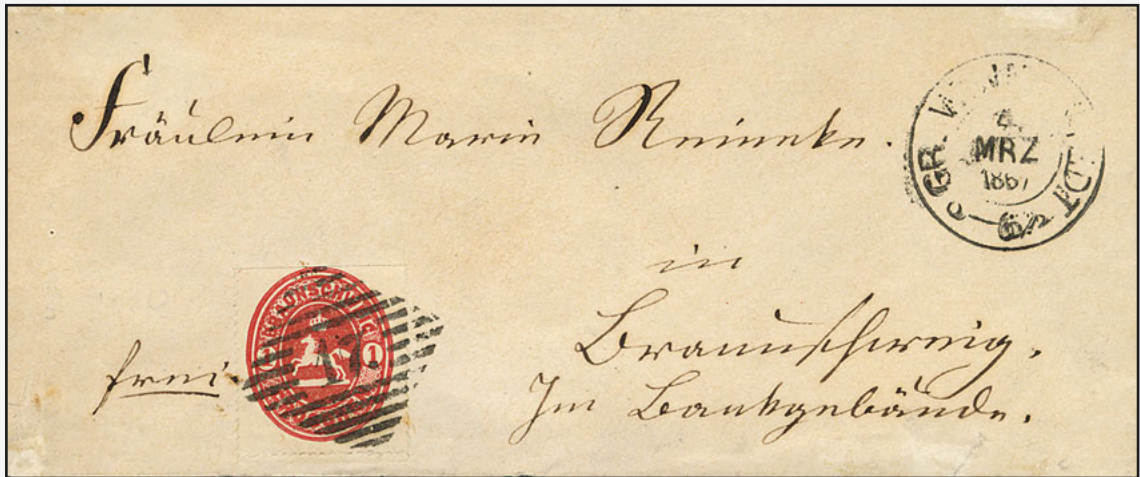 Fräulein Marie Reineke.
GR. W
4
MRZ
1867
6
in
Braunschweig.
Im Bankgebäude.
frei.
1
17